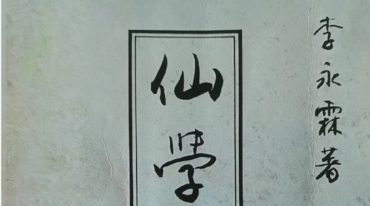 李永霖著
仙學